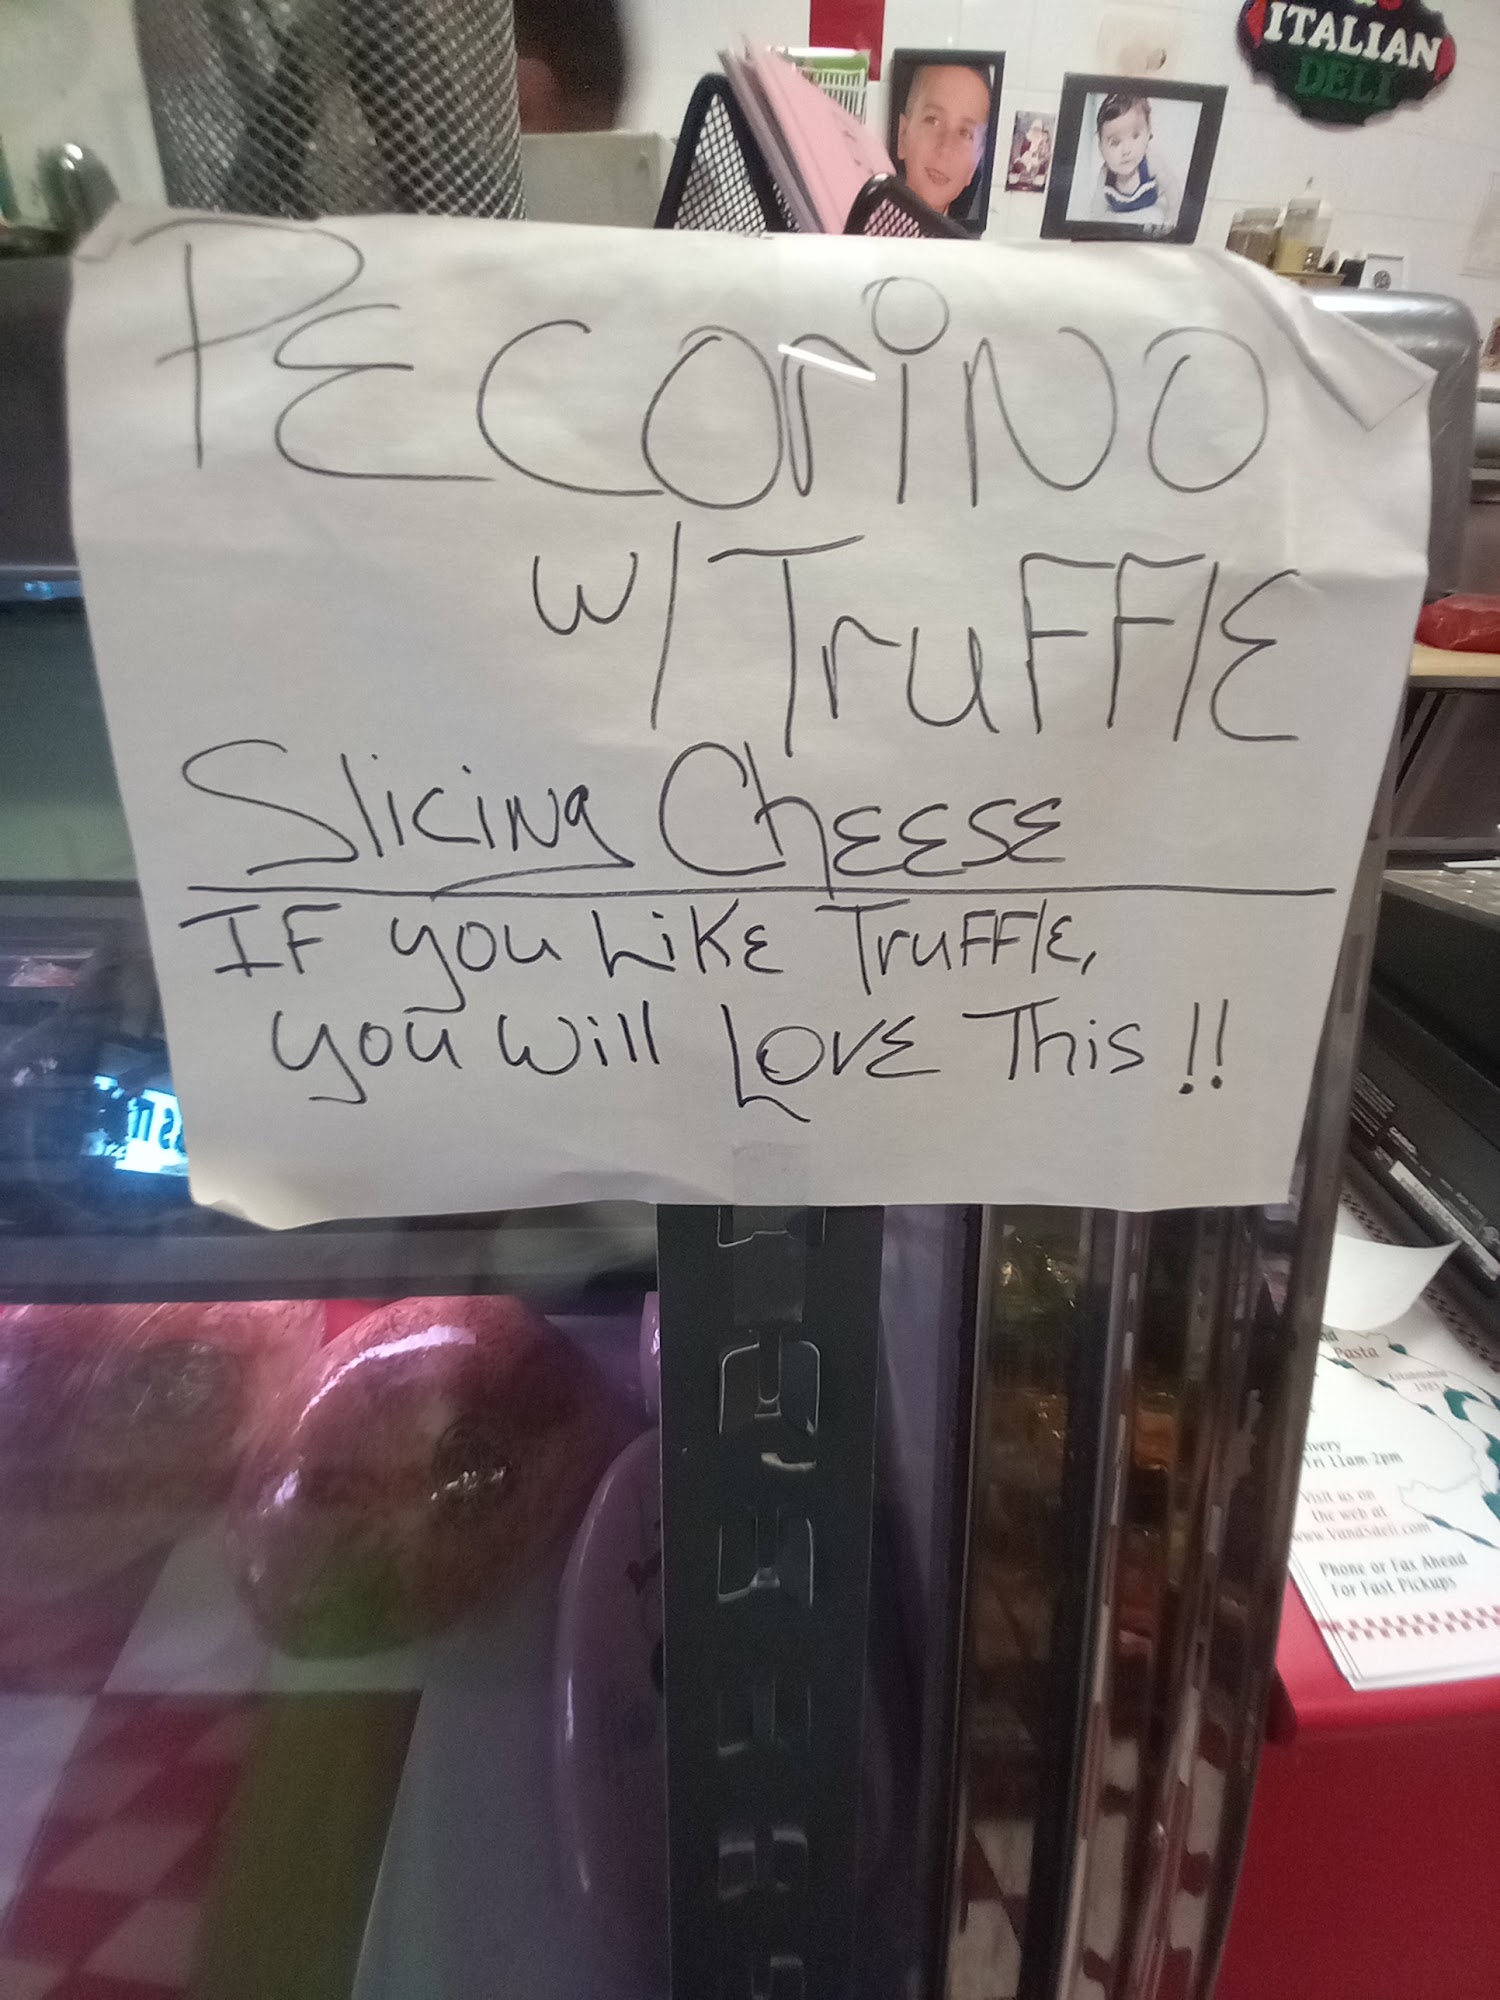 ITALIAN
DELI
PECORINO
w/ TRUFFLE
Slicing Cheese
IF you Like TruFFlE,
you will LOVE This !!
Pasta
Established
Fri 11am-2pm
Visit us on
the web at
Phone or Fax Ahead
For Fast Pickups